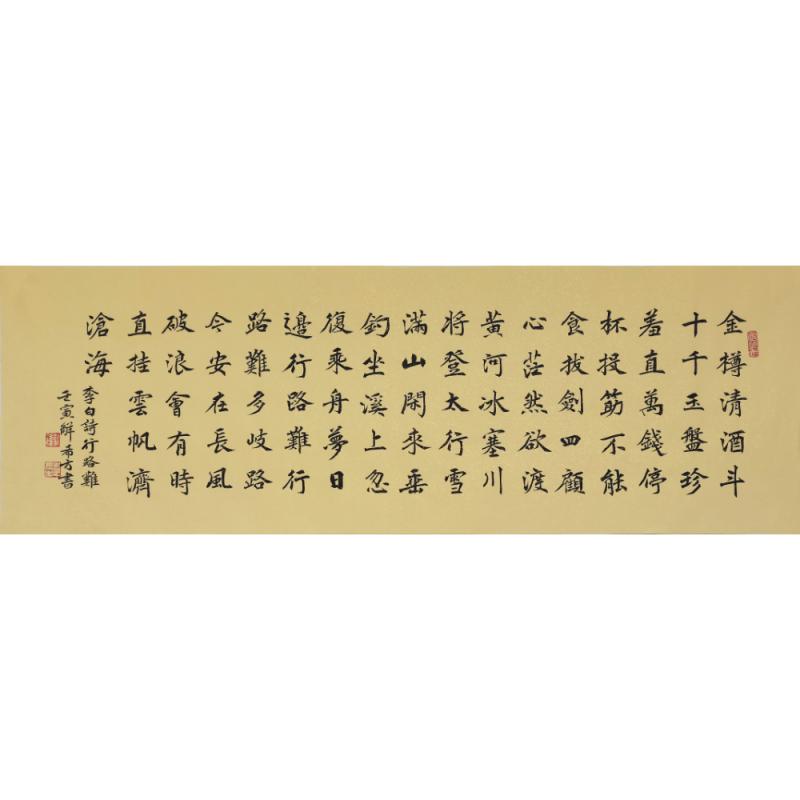 金樽清酒斗
十千玉盤珍
羞直萬錢停
杯投筯不能
食拔劍四顧
心茫然欲渡
黃河冰塞川
將登太行雪
滿山閑來垂
釣坐溪上忽
復乘舟夢日
邊行路難行
路難多歧路
今安在長風
破浪會有時
直挂雲帆濟
滄海
李白詩行路難
壬寅鮮希方書